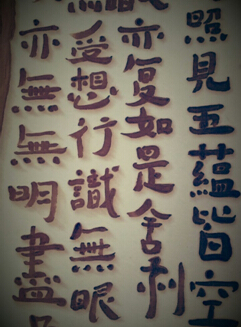 照見五蘊皆空
識亦復如是舍利
無受想行識無眼
亦無無明盡